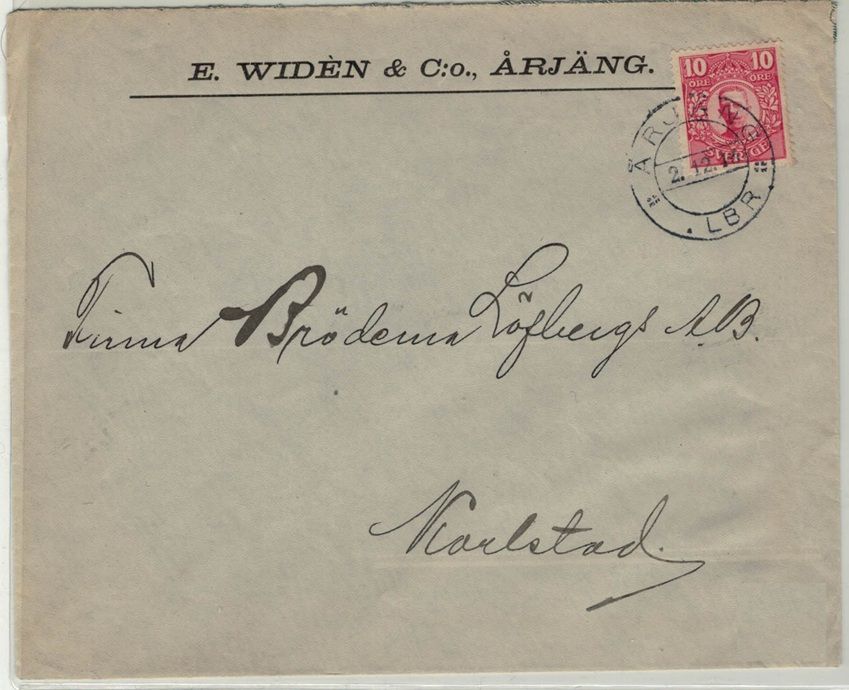 E. WIDÈN & C:o., ÅRJÄNG.
10 10
ÖRE ÖRE
SVERIGE
ÅRJÄNG
2.12.
LBR
Firma Bröderna Löfbergs A.B.
Karlstad.